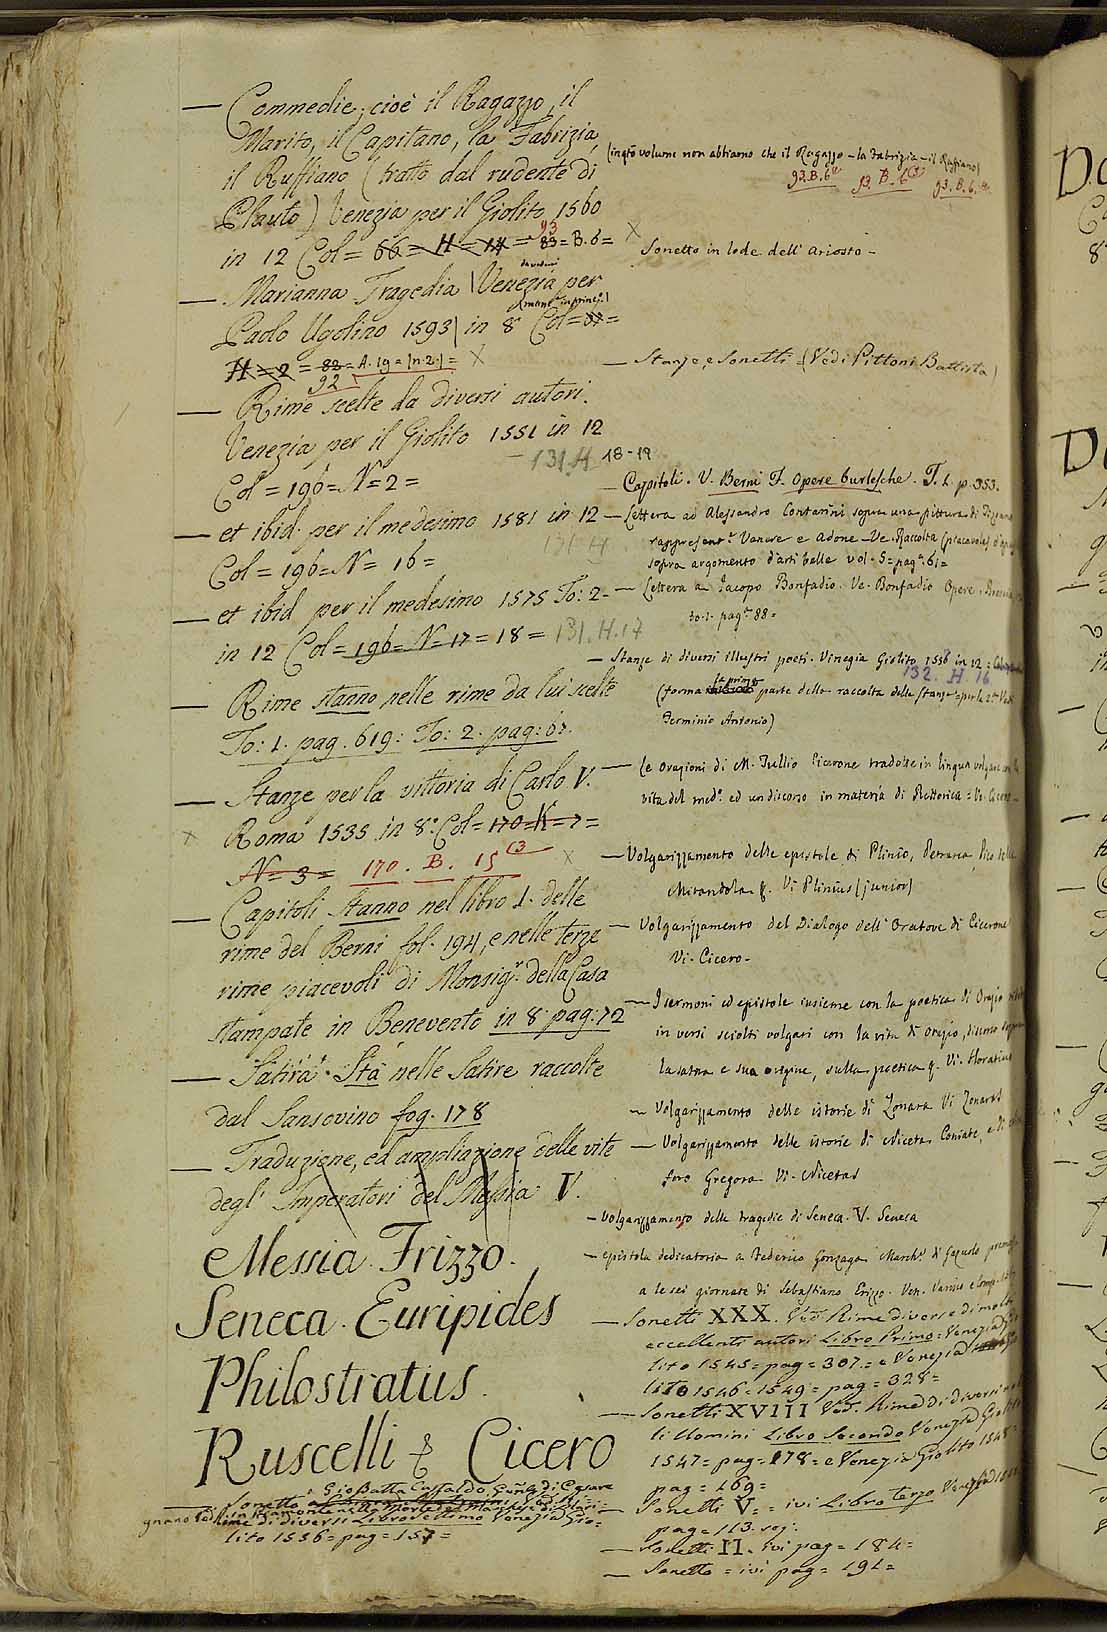 — Commedie, cioè il Ragazzo, il
Marito, il Capitano, la Fabrizia,
il Ruffiano (tratto dal rudente di
Plauto) Venezia per il Giolito 1560
in 12 Col = 66 = H = 14 = 83 = B. 6 =
93
— Marianna Tragedia (Venezia per
Paolo Ugolino 1593) in 8° Col = 87 =
H = 2 = 83 = A. 19 = (n. 2.) =
92
— Rime scelte da diversi autori.
Venezia per il Giolito 1551 in 12
131. H 18-19
Col = 196 = N = 2 =
— et ibid. per il medesimo 1581 in 12
131 H
Col = 196 = N = 16 =
— et ibid per il medesimo 1575 To: 2.
in 12 Col = 196 = N = 17 = 18 = 131. H. 17
— Rime stanno nelle rime da lui scelte
To: 1. pag. 619: To: 2. pag: 67.
— Stanze per la vittoria di Carlo V.
Roma 1535 in 8.° Col = 170 = K = 7 =
N = 3 = 170. B. 15 (3
— Capitoli stanno nel libro 1. delle
rime del Berni fol. 194, e nelle terze
rime piacevoli di Monsigr. della Casa
stampate in Benevento in 8 pag: 72
— Satira. Sta nelle Satire raccolte
dal Sansovino fog. 178
— Traduzione, ed ampliazione delle vite
degl' Imperatori del Messia V.
Messia. Trizzo.
Seneca. Euripides
Philostratus.
Ruscelli & Cicero
— Sonetto Gio Batta Castaldo
di diversi Libro Settimo Venezia Gio=
lito 1556 = pag = 157 =
(in qto volume non abbiamo che il Ragazzo - la Fabrizia - il Ruffiano)
93. B. 6 93. B. 6 (3) 93. B. 6.
Sonetto in lode dell' Ariosto -
— Stanze, e Sonetti = (Vedi Pittoni Battista)
— Capitoli. V. Berni F. Opere burlesche. T. 1. p. 353.
— Lettera ad Alessandro Contarini sopra una pittura di Tiziano
rappresent.e Venere e Adone - Ve. Raccolta
sopra argomento d'arti belle vol. 5 = pag.a 61 =
— Lettera a Jacopo Bonfadio. Ve. Bonfadio Opere. Brescia
to. 1. pag.a 88 =
— Stanze di diversi illustri poeti. Vinegia Giolito 1556 in 12 =
132. H. 16
(forma la prima parte della raccolta delle stanze = per la 2.a Vedi
Terminio Antonio)
— Le orazioni di M. Tullio Cicerone tradotte in lingua volgare con la
vita del med.o ed un discorso in materia di Rettorica = Ve. Cicero -
— Volgarizzamento delle epistole di Plinio, Petrarca, Pico della
Mirandola &. Vi Plinius (junior)
— Volgarizzamento del Dialogo dell' Oratore di Cicerone
Vi. Cicero.
— I sermoni ed epistole insieme con la poetica di Orazio ridotte
in versi sciolti volgari con la vita di Orazio, discorso sopra
la satira e sua origine, sulla poetica &. Vi. Horatius
— Volgarizzamento delle istorie di Zonara Vi Zonaras
— Volgarizzamento delle istorie di Niceta Coniate, e di
foro Gregora Vi. Nicetas
— Volgarizzamento delle tragedie di Seneca. V. Seneca
— Epistola dedicatoria a Federico Gonzaga March.e di Gazuolo premessa
a le sei giornate di Sebastiano Erizzo. Ven. Varisco e Comp.
— Sonetti XXX. Ved. Rime diverse di molti
eccellenti autori Libro Primo = Venezia Gio
lito 1545 = pag = 307. = e Venezia
lito 1546 = 1549 = pag = 328 =
— Sonetti XVIII Ved. Rime di diversi
li Uomini Libro Secondo Venezia Giolito
1547 = pag = 178 = e Venezia Giolito 1548
pag = 169 =
— Sonetti V. = ivi Libro terzo Venezia
pag = 113. seg.
— Sonetti II. ivi pag = 184 =
— Sonetto = ivi pag = 191 =